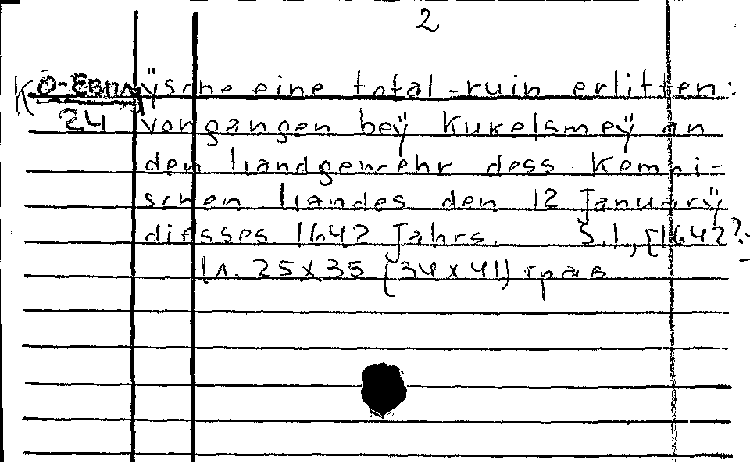 2
ÿsche eine total-ruin erlitten:
24 vorgangen beÿ Kukelsmeÿ an
den Landgewehr dess Kempi-
schen Landes den 12 Januarÿ
diesses 1642 Jahrs. S.l., [1642?.
1л. 25x35 (34x41) грав